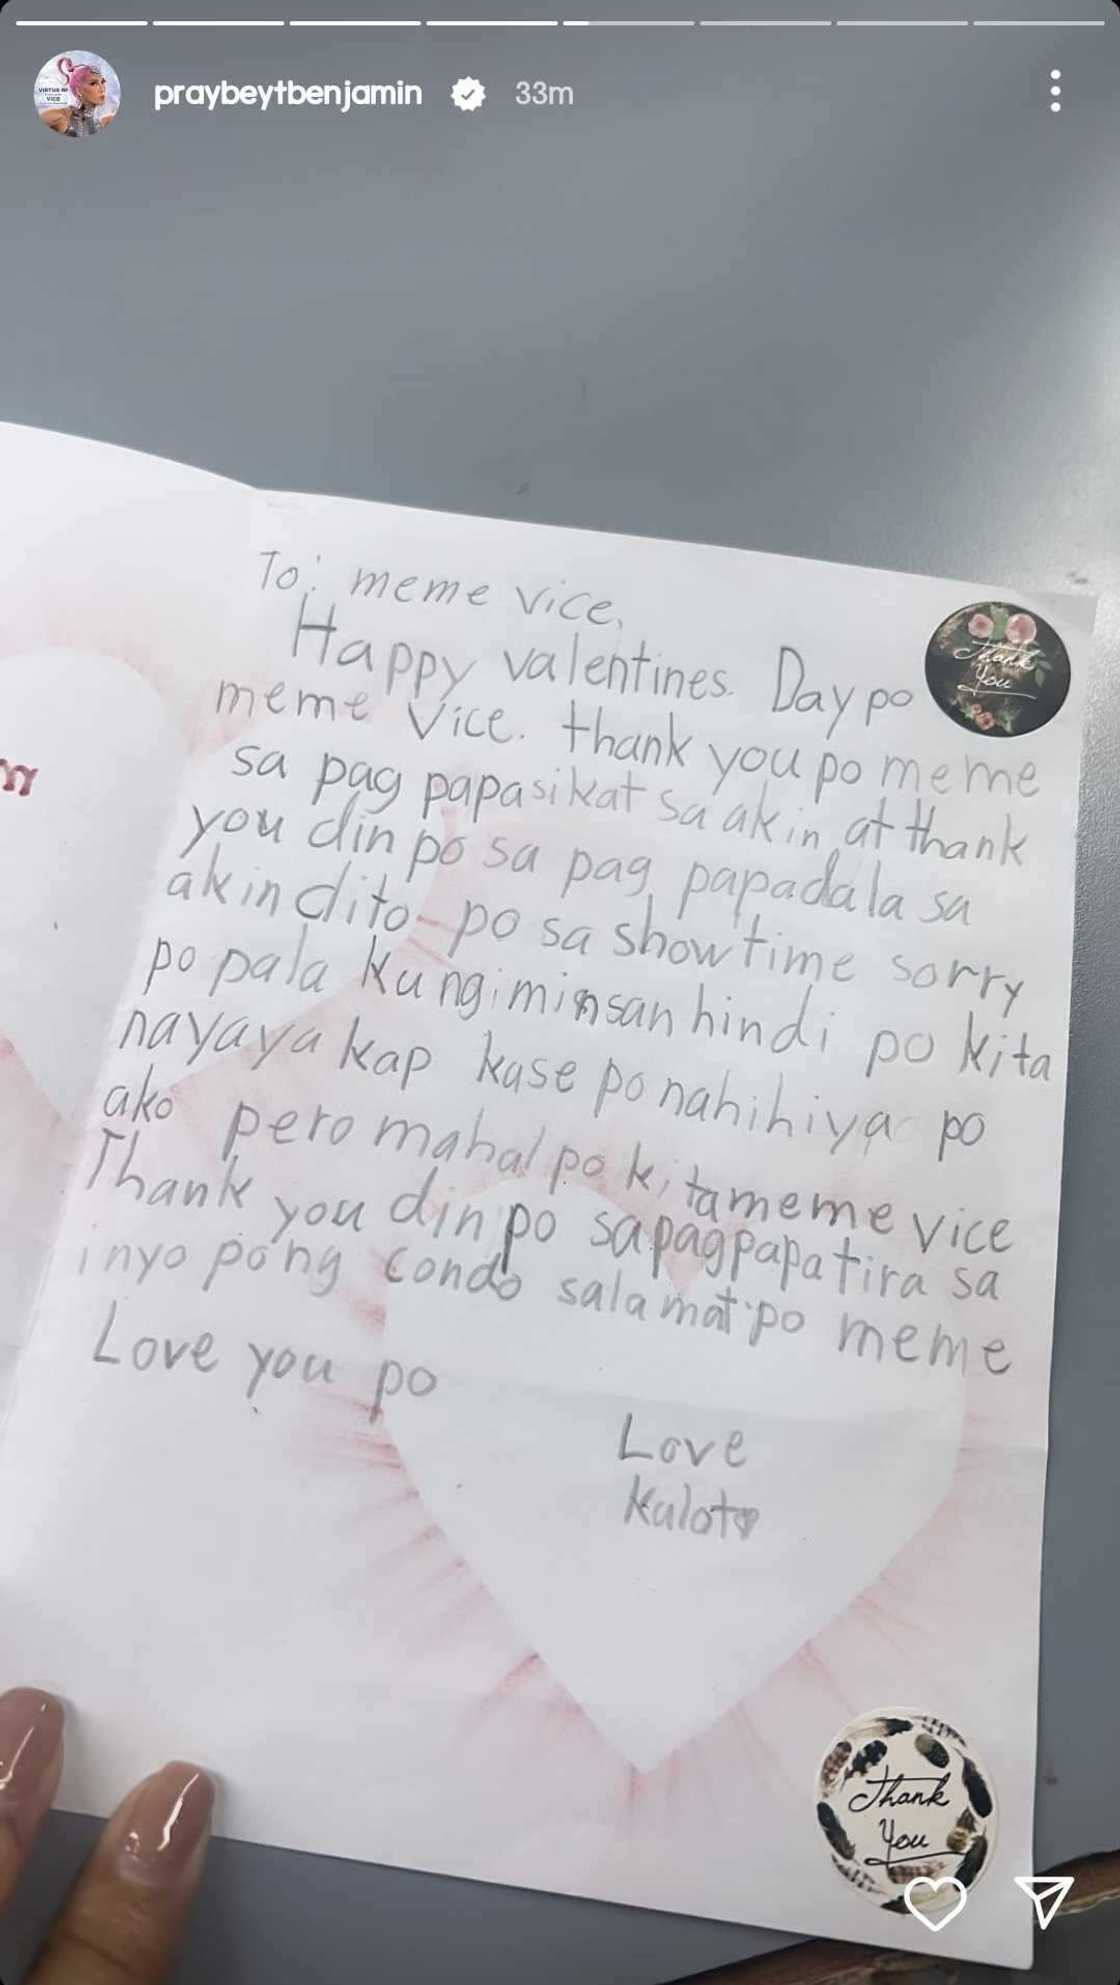 praybeytbenjamin 33m
To: meme vice,
Happy valentines. Day po
meme Vice. thank you po meme
sa pag papasikat sa akin at thank
you din po sa pag papadala sa
akin dito po sa showtime sorry
po pala kung iminsan hindi po kita
nayaya kap kase po nahihiya po
ako pero mahal po kita meme vice
Thank you din po sa pagpapatira sa
inyo pong condo salamat po meme
Love you po
Love
Kulot
Thank
You
Thank
You